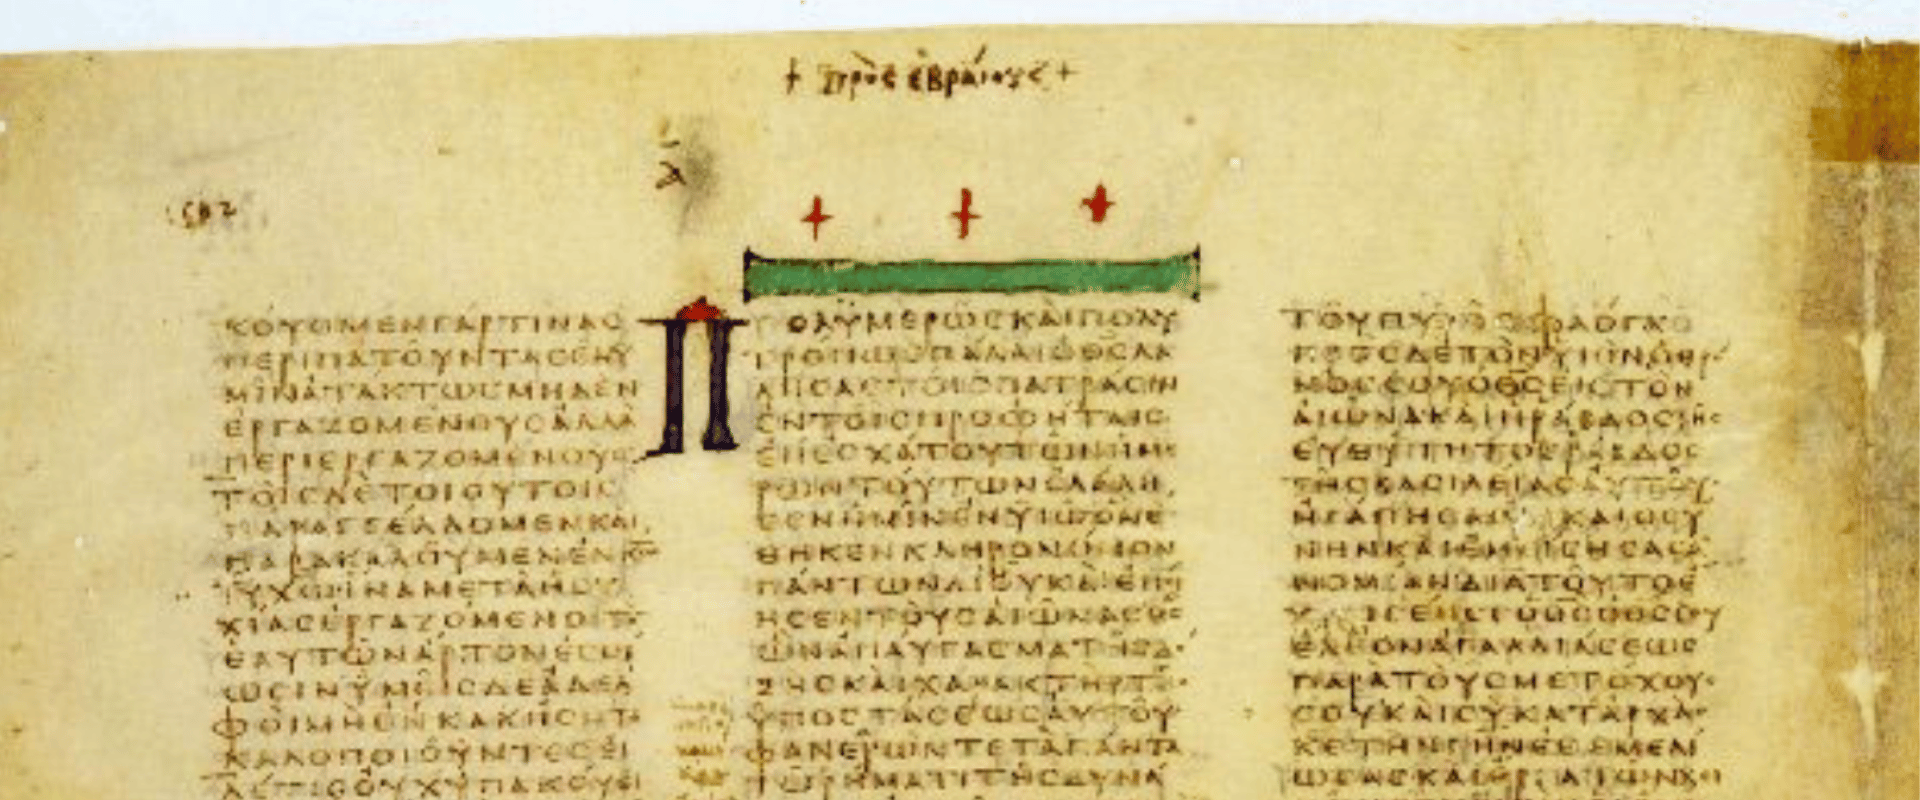 + πρὸς ἑβραίους +
ΚΟΥΟΜΕΝΓΑΡΤΙΝΑϹ
ΠΕΡΙΠΑΤΟΥΝΤΑϹΕΝΥ
ΜΙΝΑΤΑΚΤΩϹΜΗΔΕΝ
ΕΡΓΑΖΟΜΕΝΟΥϹΑΛΛΑ
ΠΕΡΙΕΡΓΑΖΟΜΕΝΟΥϹ
ΤΟΙϹΔΕΤΟΙΟΥΤΟΙϹ
ΠΑΡΑΓΓΕΛΛΟΜΕΝΚΑΙ
ΠΑΡΑΚΑΛΟΥΜΕΝΕΝΚΩ
ΙΥΧΩΙΝΑΜΕΤΑΗϹΥ
ΧΙΑϹΕΡΓΑΖΟΜΕΝΟΙΤΟ
ΕΑΥΤΩΝΑΡΤΟΝΕϹΘΙ
ΩϹΙΝΥΜΕΙϹΔΕΑΔΕΛ
ΦΟΙΜΗΕΝΚΑΚΗϹΗΤΕ
ΚΑΛΟΠΟΙΟΥΝΤΕϹΕΙ
ΔΕΤΙϹΟΥΧΥΠΑΚΟΥΕΙ
ΠΟΛΥΜΕΡΩϹΚΑΙΠΟΛΥ
ΤΡΟΠΩϹΠΑΛΑΙΟΘϹΛΑ
ΛΗϹΑϹΤΟΙϹΠΑΤΡΑϹΙΝ
ΕΝΤΟΙϹΠΡΟΦΗΤΑΙϹ
ΕΠΕϹΧΑΤΟΥΤΩΝΗΜΕ
ΡΩΝΤΟΥΤΩΝΕΛΑΛΗ
ϹΕΝΗΜΙΝΕΝΥΙΩΟΝΕ
ΘΗΚΕΝΚΛΗΡΟΝΟΜΟΝ
ΠΑΝΤΩΝΔΙΟΥΚΑΙΕΠΟΙ
ΗϹΕΝΤΟΥϹΑΙΩΝΑϹΟϹ
ΩΝΑΠΑΥΓΑϹΜΑΤΗϹΔΟ
ΞΗϹΚΑΙΧΑΡΑΚΤΗΡΤΗϹ
ΥΠΟϹΤΑϹΕΩϹΑΥΤΟΥ
ΦΑΝΕΡΩΝΤΕΤΑΠΑΝΤΑ
ΤΩΡΗΜΑΤΙΤΗϹΔΥΝΑ
ΤΟΥΠΥΡΟϹΦΛΟΓΑΠΡΟ
ΝΟϹϹΟΥΟΘϹΕΙϹΤΟΝ
ΑΙΩΝΑΚΑΙΗΡΑΒΔΟϹΤΗϹ
ΕΥΘΥΤΗΤΟϹΡΑΒΔΟϹ
ΤΗϹΒΑϹΙΛΕΙΑϹΑΥΤΟΥ
ΗΓΑΠΗϹΑϹΔΙΚΑΙΟϹΥ
ΝΗΝΚΑΙΕΜΙϹΗϹΑϹΑ
ΝΟΜΙΑΝΔΙΑΤΟΥΤΟΕ
ΕΛΑΙΟΝΑΓΑΛΛΙΑϹΕΩϹ
ΠΑΡΑΤΟΥϹΜΕΤΟΧΟΥϹ
ϹΟΥΚΑΙϹΥΚΑΤΑΡΧΑϹ
ΚΕΤΗΝΓΗΝΕΘΕΜΕΛΙ